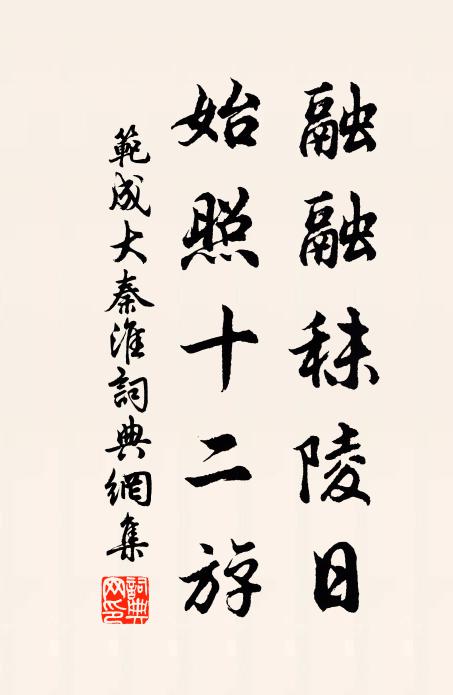 融融秣陵日
始照十二斿
範成大秦淮詞典網集
詞典網印